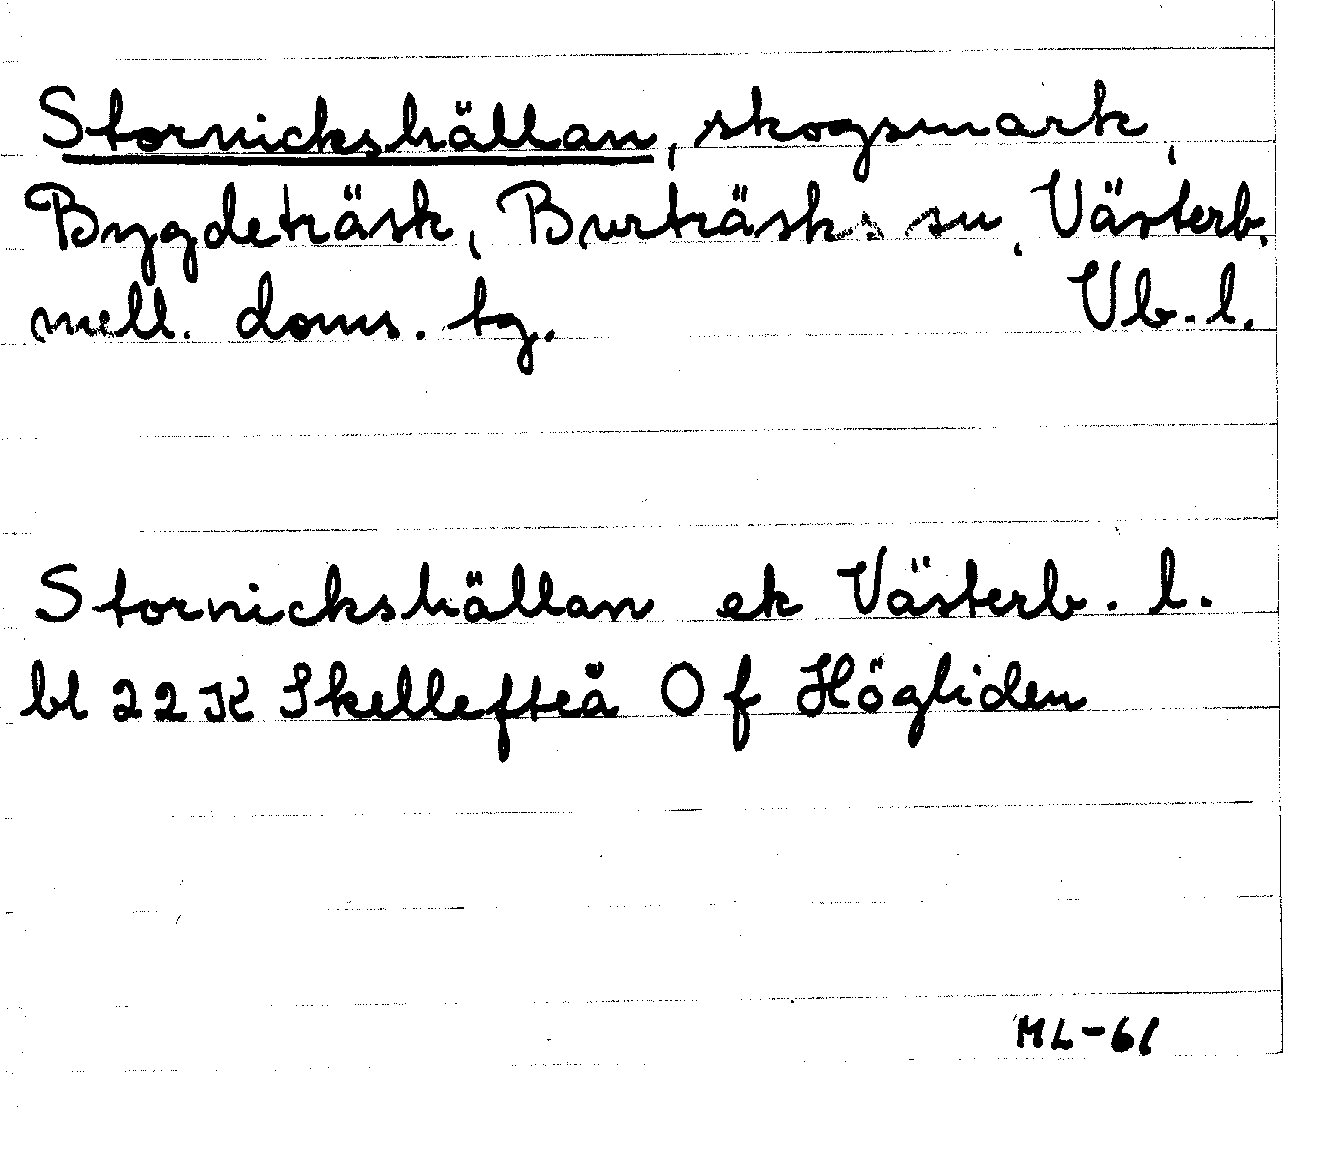 Stornickshällan, skogsmark,
Bygdeträsk, Burträsks sn, Västerb.
mell. doms. tg. Vb. l.
Stornickshällan ek Västerb. l.
bl 22 K Skellefteå 0 f Högliden
ML-61